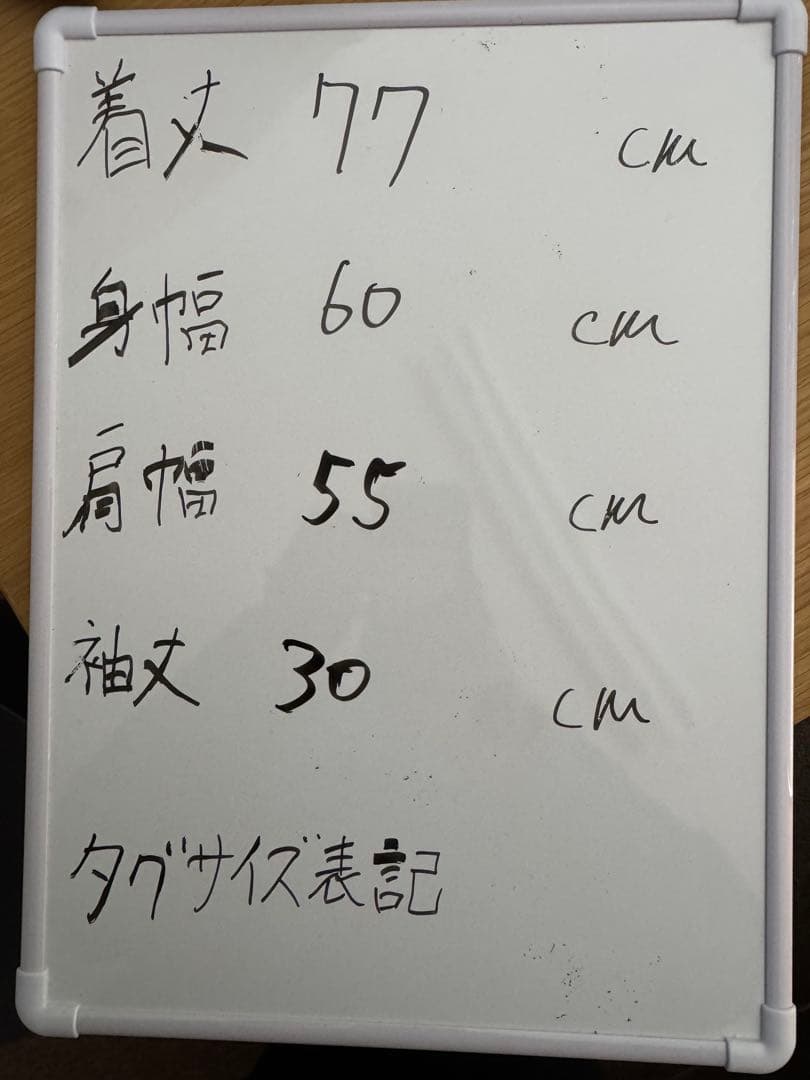 着丈 77 cm
身幅 60 cm
肩幅 55 cm
袖丈 30 cm
タグサイズ表記